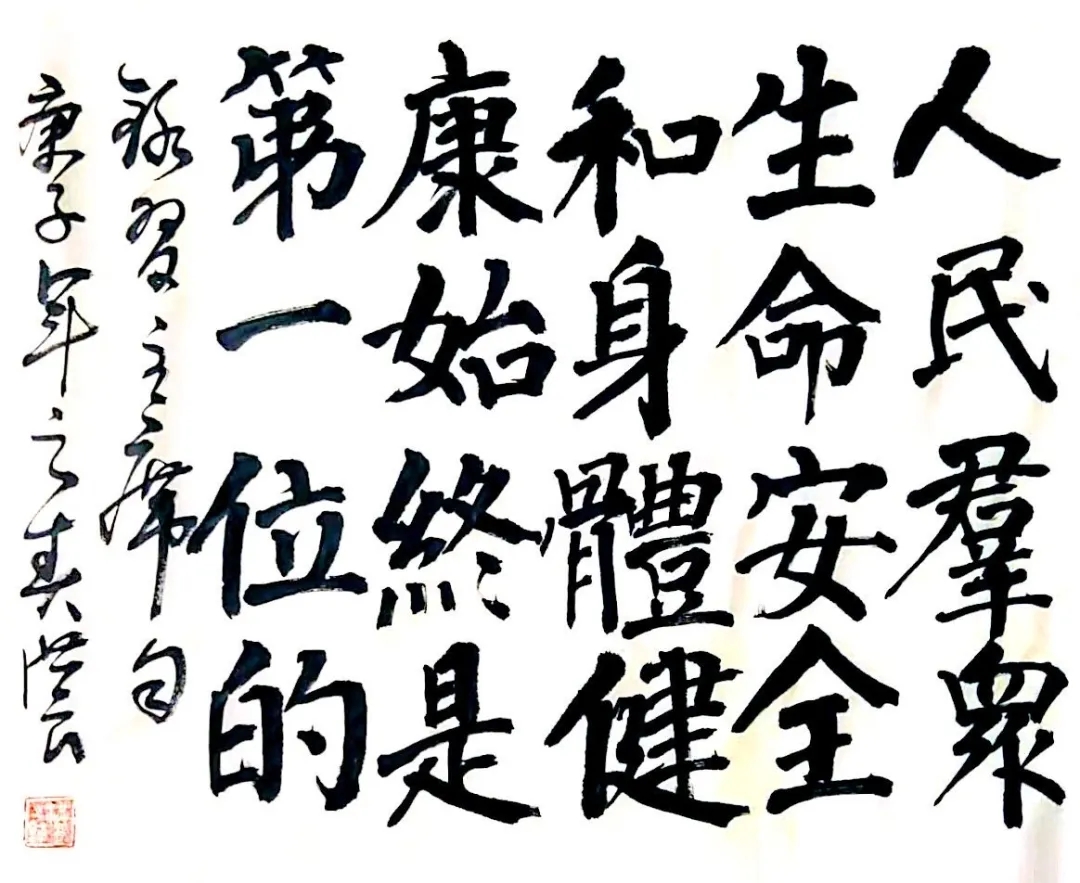 人民羣眾
生命安全
和身體健
康始終是
第一位的
錄習主席句
庚子年之春